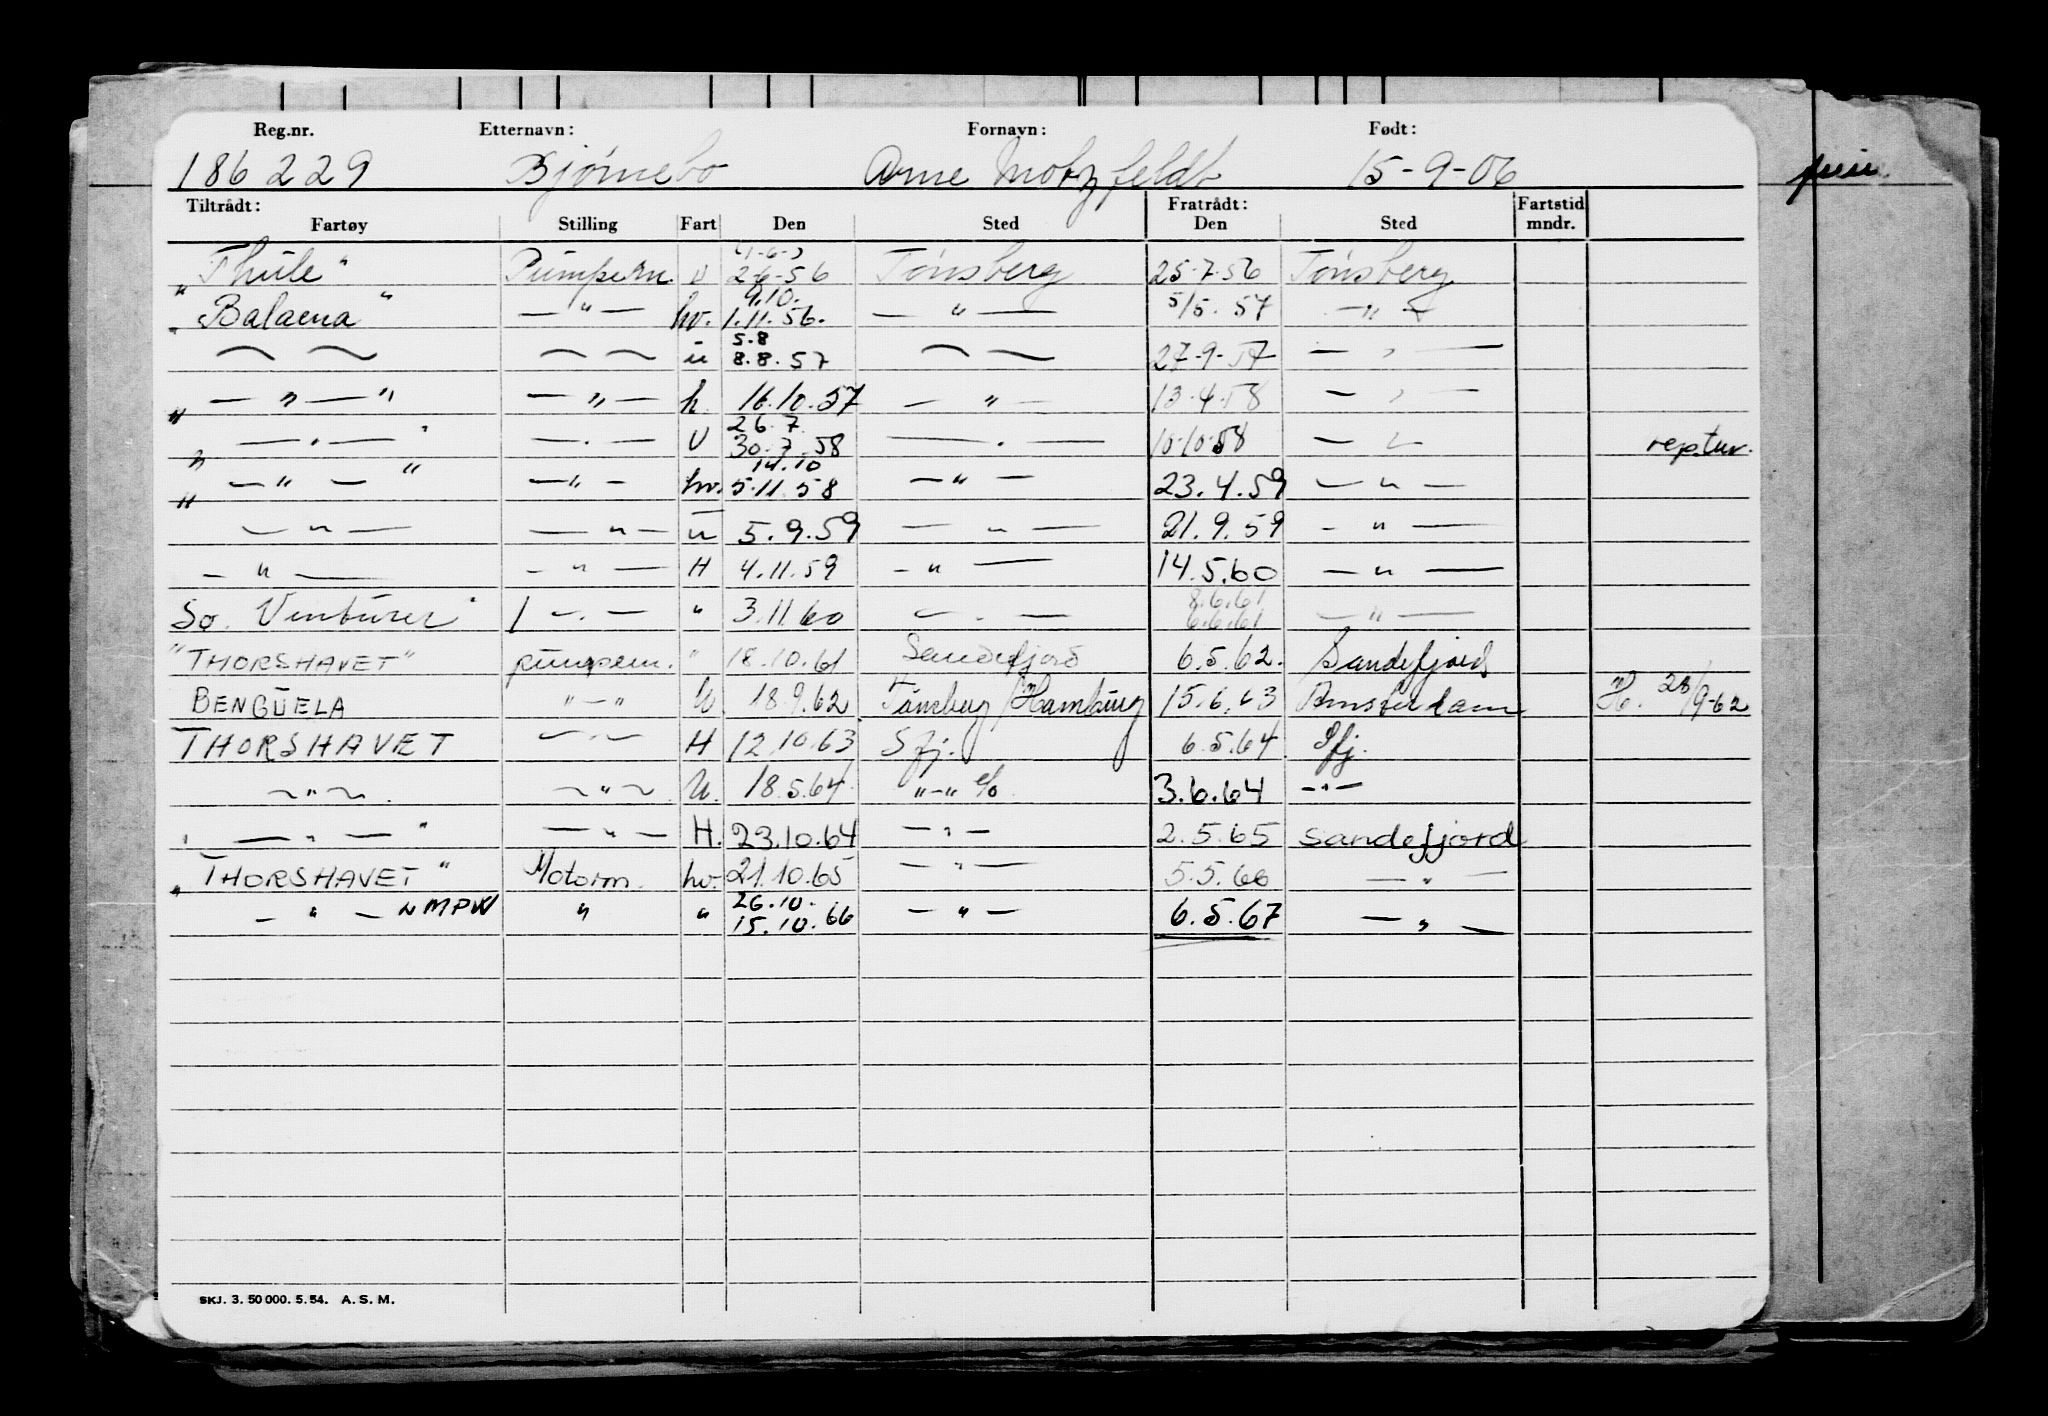 Reg.nr. Etternavn: Fornavn: Født:
186229 Bjørnebo Arne Motzfeldt 15-9-06
Tiltrådt: Fratrådt: Fartstid
Fartøy Stilling Fart Den Sted Den Sted mndr.
"Thule" Pumpem. U 2-6-56 Tønsberg 25-7-56 Tønsberg
9.10.
"Balaena" — " — hv. 1.11.56. — " — 5/5.57 — " —
5.8
~ ~ ~ ~ u 8.8.57 ~ ~ 27-9-57 — " —
" — " — " — " — h. 16.10.57 — " — 13.4.58 — " —
26.7.
" — " — " — " — U 30.7.58 — " — 10-10-58 — " — reptur.
14.10
" — " — " — " — hv. 5.11.58 — " — 23.4.59 — " —
— " — — " — u 5.9.59 — " — 21.9.59 — " —
— " — — " — H 4.11.59 — " — 14.5.60 — " —
8.6.61
So. Venturer — " — " 3.11.60 — " — 6.6.61 — " —
"THORSHAVET" pumpem. " 18.10.61 Sandefjord 6.5.62. Sandefjord
BENGUELA " — " U. 18.9.62 Tønsberg/Hamburg 15.6.63 Amsterdam H. 28/9-62
THORSHAVET — " — H 12.10.63 Sfj. 6.5.64 Sfj.
~ " ~ ~ " ~ U. 18.5.64 " — " c/o 3.6.64 — " —
" — " — " — " — H. 23.10.64 — " — 2.5.65 Sandefjord
"THORSHAVET" Motorm. hv. 21.10.65 — " — 5.5.66 — " —
26.10.
— " — LMPW " " 15.10.66 — " — 6.5.67 — " —
SKJ. 3. 50 000. 5. 54. A. S. M.